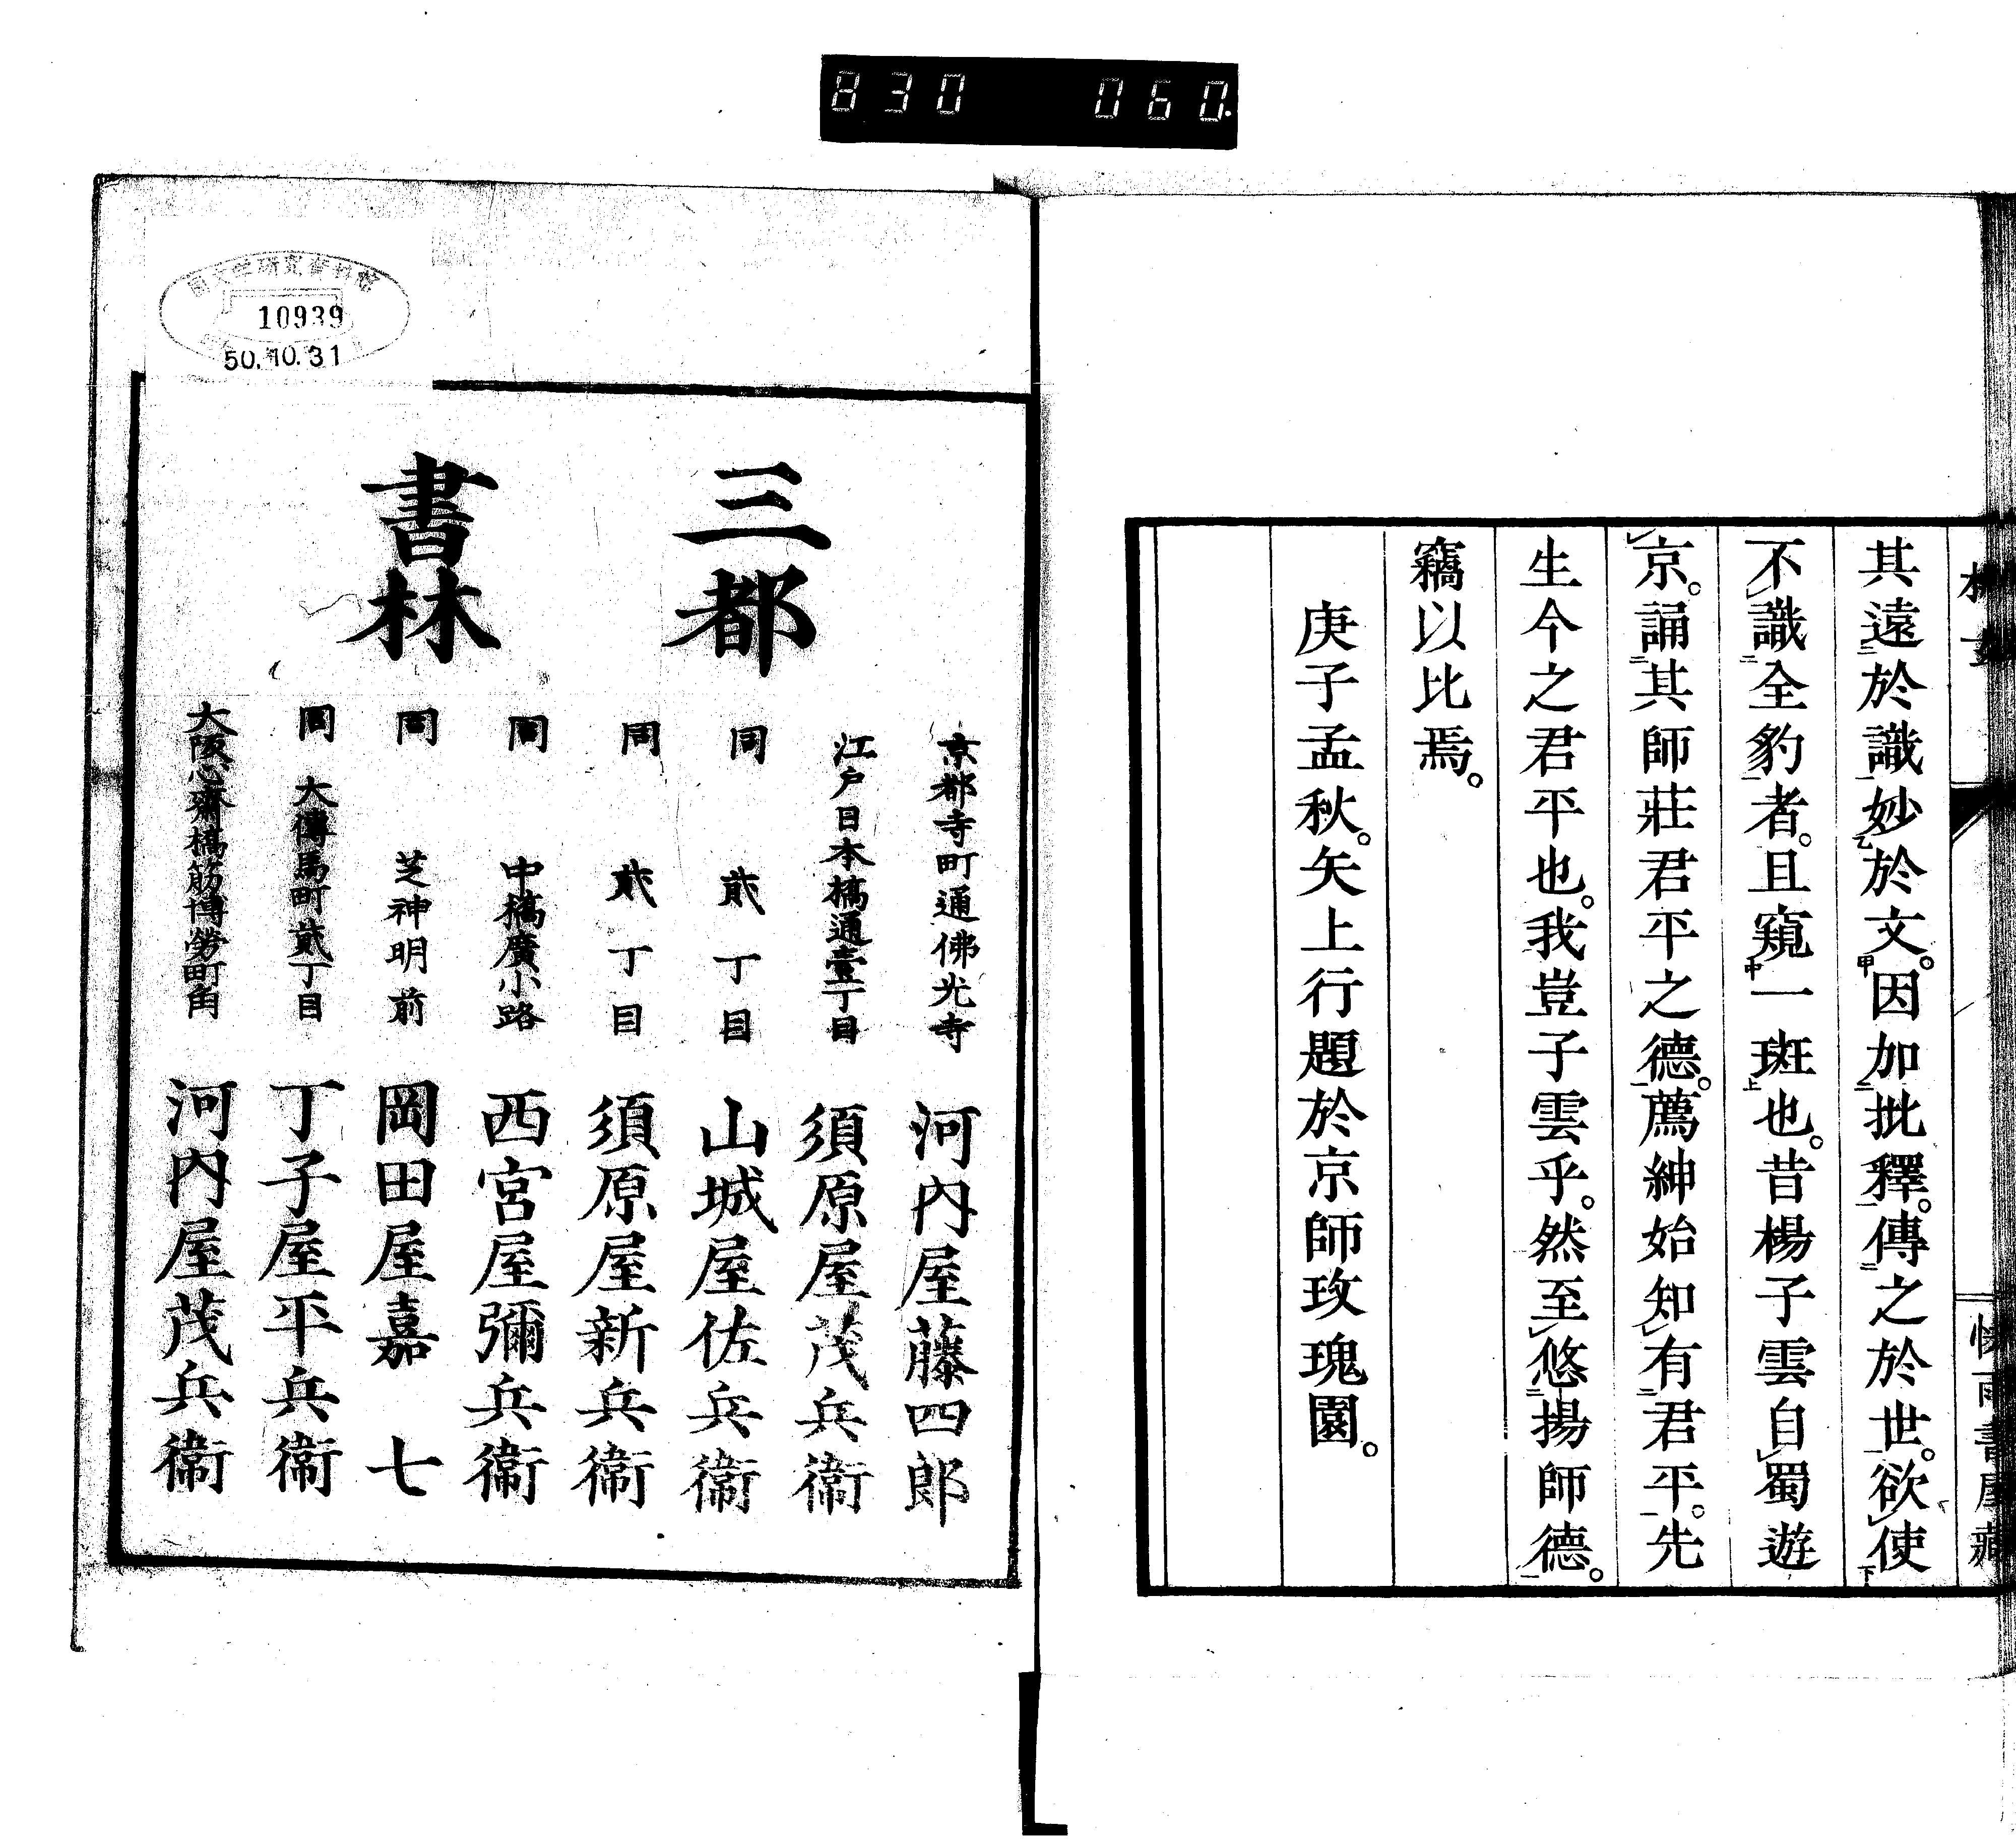 830 060.
其遠於識妙於文。因加批釋。傳之於世。欲使
不識全豹者。且窺一斑也。昔楊子雲自蜀遊
京。誦其師莊君平之德。薦紳始知有君平。先
生今之君平也。我豈子雲乎。然至悠揚師德。
竊以比焉。
庚子孟秋。矢上行題於京師玫瑰園。
三都
書林
京都寺町通佛光寺 河内屋藤四郎
江戸日本橋通壹丁目 須原屋茂兵衞
同 貳丁目 山城屋佐兵衞
同 貳丁目 須原屋新兵衞
同 中橋廣小路 西宮屋彌兵衞
同 芝神明前 岡田屋嘉七
同 大傳馬町貳丁目 丁子屋平兵衞
大阪心齋橋筋博勞町角 河内屋茂兵衞
國文学研究資料館
10939
50.10.31